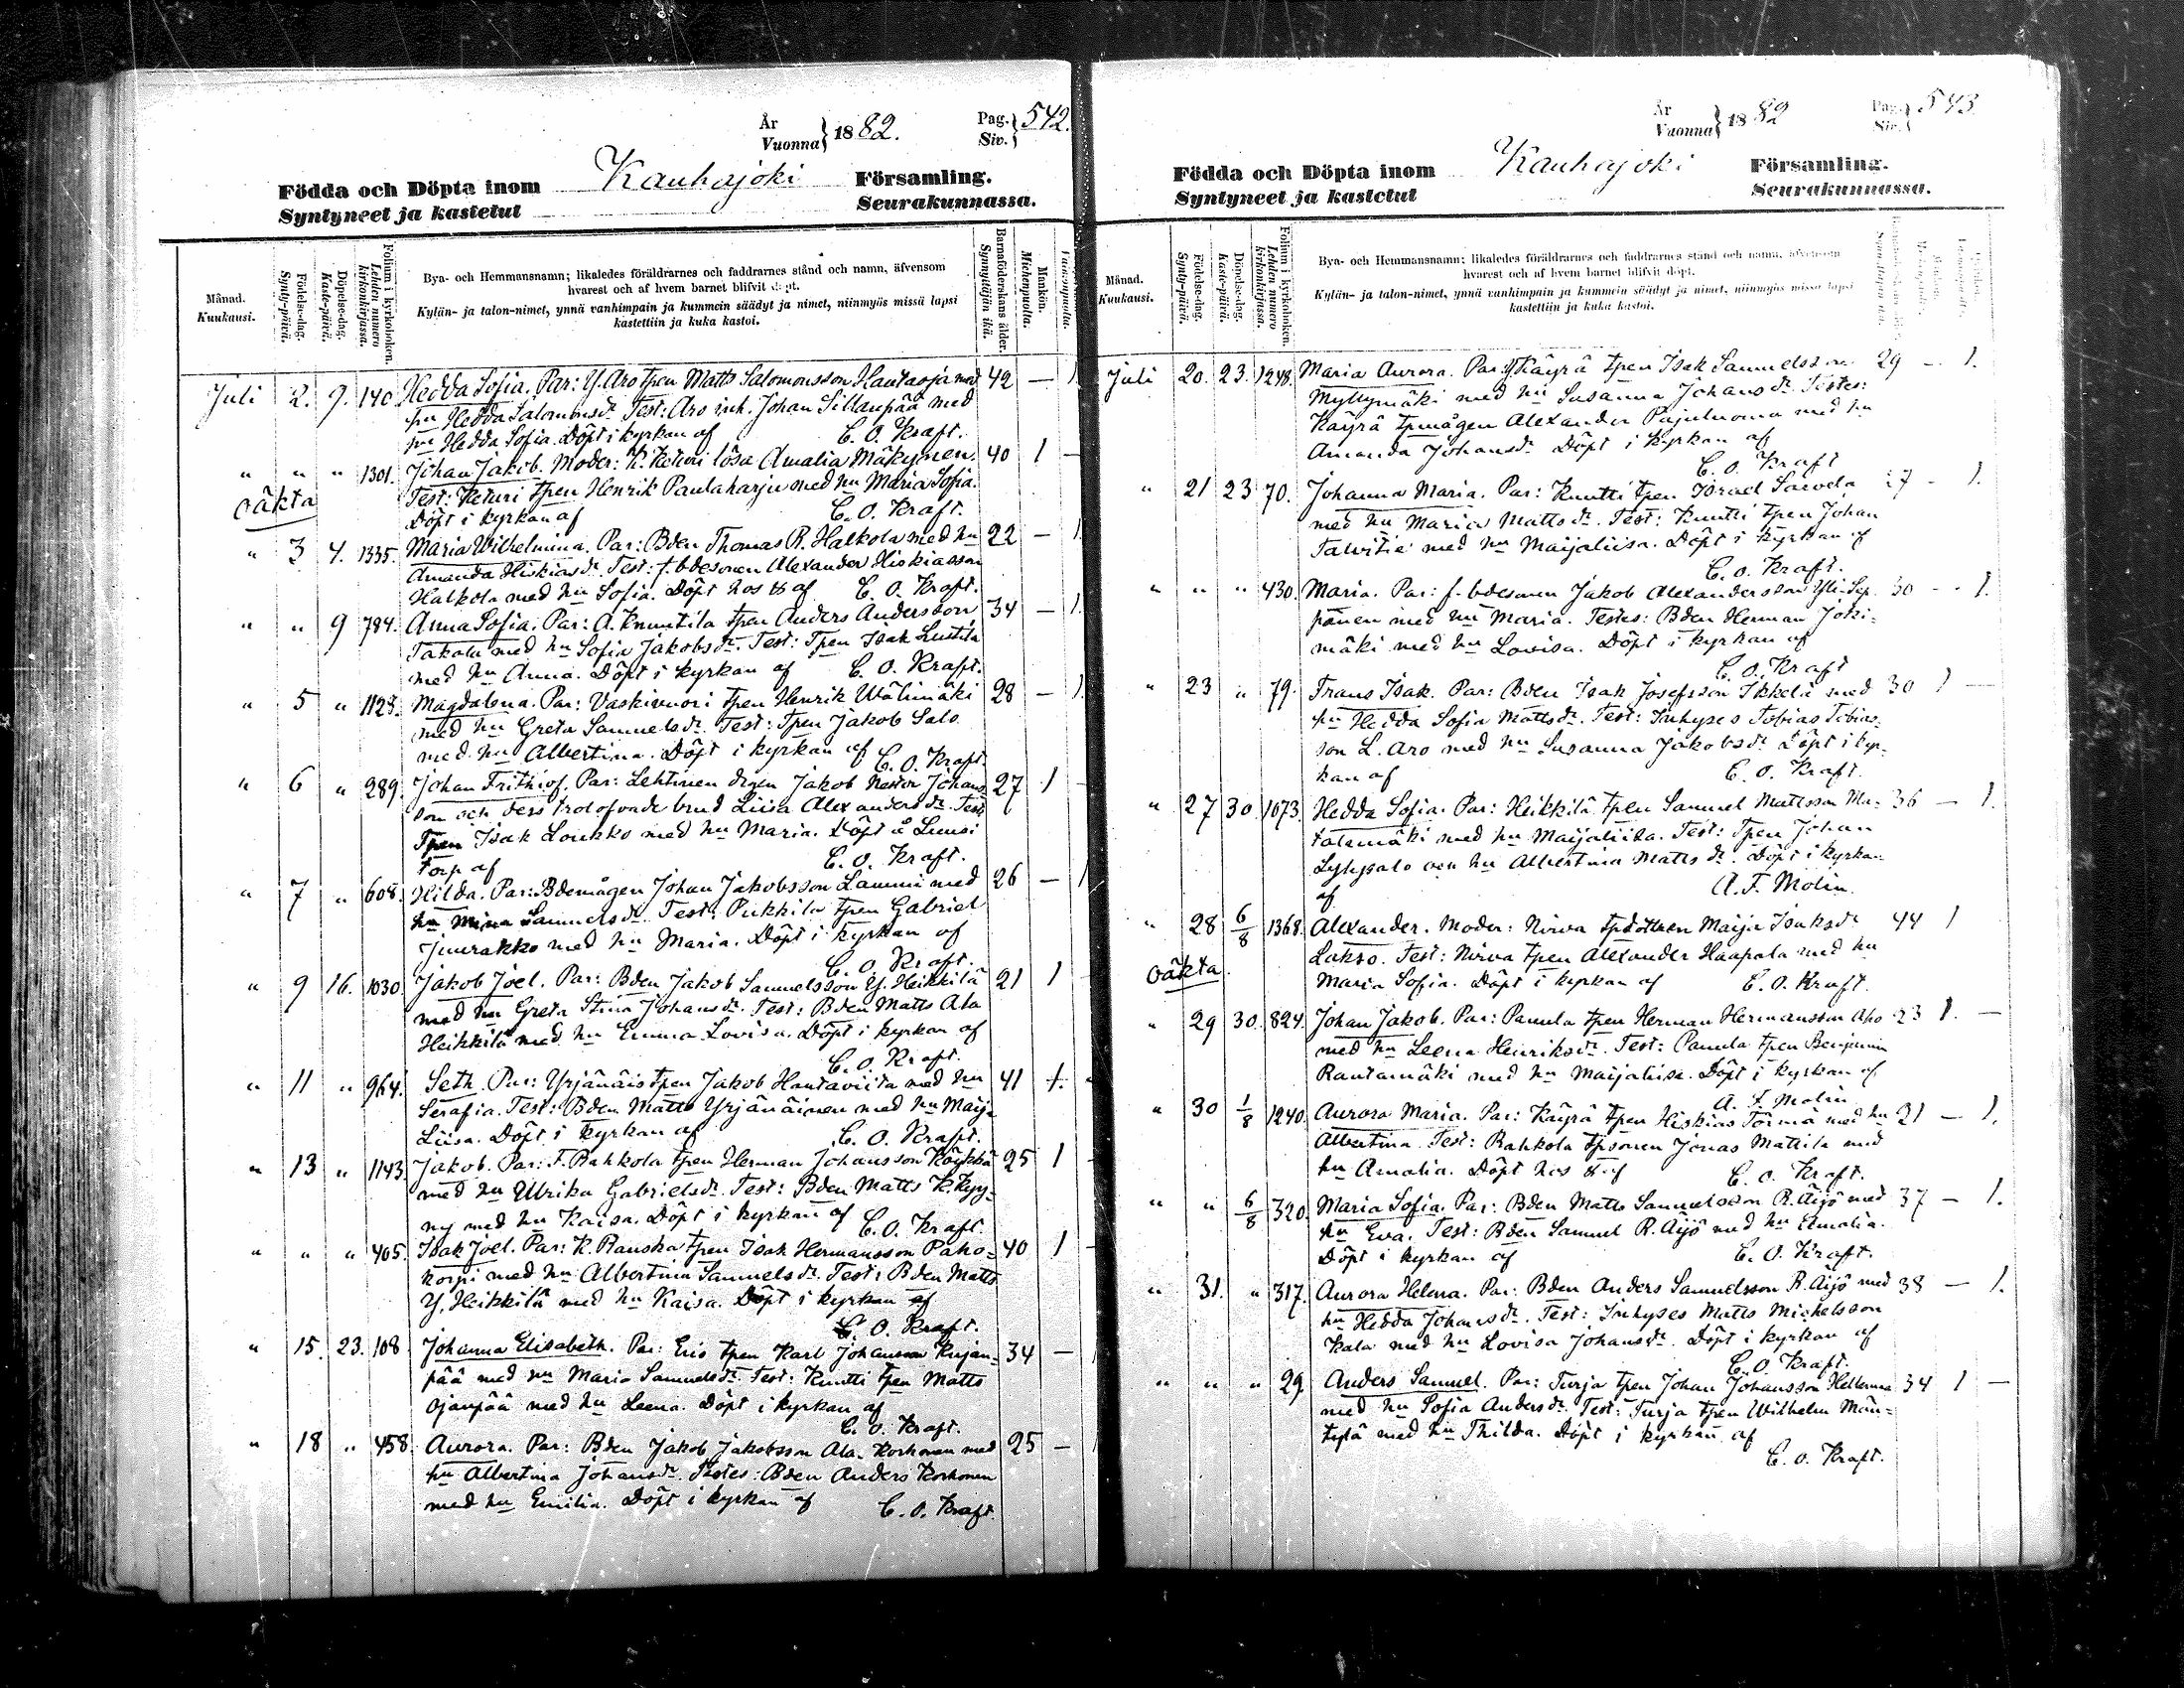 År
Vuonna } 1882.
Pag.
Siv. } 542.
Födda och Döpta inom Kauhajoki Församling.
Syntyneet ja kastetut Seurakunnassa.
Månad.
Kuukausi.
Födelse-dag.
Synty-päivä.
Döpelse-dag.
Kaste-päivä.
Folium i kyrkoboken.
Lehden numero kirkonkirjassa.
Bya- och Hemmansnamn; likaledes föräldrarnes och faddrarnes stånd och namn, äfvensom
hvarest och af hvem barnet blifvit döpt.
Kylän- ja talon-nimet, ynnä vanhimpain ja kummein säädyt ja nimet, niinmyös missä lapsi
kastettiin ja kuka kastoi.
Barnaföderskans ålder.
Synnyttäjän ikä.
Mankön.
Miehenpuolta.
Juli 2. 9. 140 Hedda Sofia. Par: Y. Aro tpen Matts Salomonsson Hautaoja med 42 — 1
hu Hedda Salomonsdr. Test: Aro inh. Johan Sillanpää med
hu Hedda Sofia. Döpt i kyrkan af C. O. Kraft.
" " " 1301. Johan Jakob. Moder: K. Keturi lösa Amalia Mäkynen. 40 1 —
oäkta Test: Keturi tpen Henrik Paulaharju med hu Maria Sofia.
Döpt i kyrkan af C. O. Kraft.
" 3 4. 1335. Maria Wilhelmina. Par: Bden Thomas R. Halkola med hu 22 — 1.
Amanda Hiskiasdr. Test: f. bdesonen Alexander Hiskiasson
Halkola med hu Sofia. Döpt hos af C. O. Kraft.
" " 9 784. Anna Sofia. Par: A. Knuutila tpen Anders Andersson 34 — 1.
Takala med hu Sofia Jakobsdr. Test: Tpen Isak Lustila
med hu Anna. Döpt i kyrkan af C. O. Kraft.
" 5 " 1128. Magdalena. Par: Vaskivuori tpen Henrik Wälimäki 28 — 1.
med hu Greta Samuelsdr. Test: Tpen Jakob Salo
med hu Albertina. Döpt i kyrkan af C. O. Kraft.
" 6 " 289. Johan Frithiof. Par: Lehtinen drgen Jakob Nestor Johans- 27 1 —
son och dess trolofvade brud Liisa Alexandersdr. Test:
Tpen Isak Loukko med hu Maria. Döpt å Luusi
torp af C. O. Kraft.
" 7 " 608. Hilda. Par: Bdemågen Johan Jakobsson Lammi med 26 — 1
hu Mina Samuelsdr. Test: Pukkila tpen Gabriel
Juurakko med hu Maria. Döpt i kyrkan af
C. O. Kraft.
" 9 16. 1030. Jakob Joel. Par: Bden Jakob Samuelsson Y. Heikkilä 21 1
med hu Greta Stina Johansdr. Test: Bden Matts Ala
Heikkilä med hu Emma Lovisa. Döpt i kyrkan af
C. O. Kraft.
" 11 " 964. Seth. Par: Yrjänäis tpen Jakob Hautaviita med hu 41 1.
Serafia. Test: Bden Matts Yrjänäinen med hu Maija
Liisa. Döpt i kyrkan af C. O. Kraft.
" 13 " 1143 Jakob. Par: F. Rahkola tpen Herman Johansson Köykkä 25 1
med hu Ulrika Gabrielsdr. Test: Bden Matts K. Kyy-
ny med hu Kaisa. Döpt i kyrkan af C. O. Kraft.
" " " 405. Isak Joel. Par: K. Rauska tpen Isak Hermansson Paho- 40 1 —
korpi med hu Albertina Samuelsdr. Test: Bden Matts
Y. Heikkilä med hu Kaisa. Döpt i kyrkan af
C. O. Kraft.
" 15. 23. 108 Johanna Elisabeth. Par: Eris tpen Karl Johansson Kujan- 34 —
pää med hu Maria Samuelsdr. Test: Knutti tpen Matts
Ojanpää med hu Leena. Döpt i kyrkan af
C. O. Kraft.
" 18 " 458 Aurora. Par: Bden Jakob Jakobsson Ala-Korhonen med 25 —
hu Albertina Johansdr. Testes: Bden Anders Korhonen
med hu Emilia. Döpt i kyrkan af C. O. Kraft.
År
Vuonna } 1882
Pag.
Siv. } 543
Födda och Döpta inom Kauhajoki Församling.
Syntyneet ja kastetut Seurakunnassa.
Månad.
Kuukausi.
Födelse-dag.
Synty-päivä.
Döpelse-dag.
Kaste-päivä.
Folium i kyrkoboken.
Lehden numero kirkonkirjassa.
Bya- och Hemmansnamn; likaledes föräldrarnes och faddrarnes stånd och namn, äfvensom
hvarest och af hvem barnet blifvit döpt.
Kylän- ja talon-nimet, ynnä vanhimpain ja kummein säädyt ja nimet, niinmyös missä lapsi
kastettiin ja kuka kastoi.
Juli 20. 23. 1248. Maria Aurora. Par: Y. Käyrä tpen Isak Samuelsson 29 — 1.
Myllymäki med hu Susanna Johansdr. Testes:
Käyrä tpmågen Alexander Pajuluoma med hu
Amanda Johansdr. Döpt i kyrkan af
C. O. Kraft
" 21 23 70. Johanna Maria. Par: Knutti tpen Israel Sarvela 27 - 1.
med hu Maria Mattsdr. Test: Knutti tpen Johan
Talvitie med hu Maijaliisa. Döpt i kyrkan af
C. O. Kraft.
" " " 430. Maria. Par: f. bdesonen Jakob Alexandersson Yli-Sep- 30 - 1.
pänen med hu Maria. Testes: Bden Herman Joki-
mäki med hu Lovisa. Döpt i kyrkan af
C. O. Kraft
" 23 " 79. Frans Isak. Par: Bden Isak Josefsson Ikkelä med 30 1 —
hu Hedda Sofia Mattsdr. Test: Inhyses Tobias Tobias-
son L. Aro med hu Susanna Jakobsdr. Döpt i kyr-
kan af C. O. Kraft.
" 27 30 1073. Hedda Sofia. Par: Heikkilä tpen Samuel Mattsson Ma- 36 — 1.
talamäki med hu Maijaliisa. Test: Tpen Johan
Lyhysalo och hu Albertina Mattsdr. Döpt i kyrkan
af A. F. Molin.
" 28 6/8 1368. Alexander. Moder: Nirva tpdottren Maija Isaksdr 44 1
oäkta Lakso. Test: Nirva tpen Alexander Haapala med hu
Maria Sofia. Döpt i kyrkan af C. O. Kraft.
" 29 30. 824. Johan Jakob. Par: Panula tpen Herman Hermansson Aho 23 1. —
med hu Leena Henriksdr. Test: Panula tpen Benjamin
Rantamäki med hu Maijaliisa. Döpt i kyrkan af
A. F. Molin
" 30 1/8 1240. Aurora Maria. Par: Käyrä tpen Hiskias Törmä med hu 21 — 1.
Albertina. Test: Rahkola tpsonen Jonas Mattila med
hu Amalia. Döpt hos af C. O. Kraft.
" " 6/8 320. Maria Sofia. Par: Bden Matts Samuelsson R. Äijö med 37 — 1.
hu Eva. Test: Bden Samuel R. Äijö med hu Amalia.
Döpt i kyrkan af C. O. Kraft.
" 31. " 317. Aurora Helena. Par: Bden Anders Samuelsson R. Äijö med 38 — 1.
hu Hedda Johansdr. Test: Inhyses Matts Michelsson
Kala med hu Lovisa Johansdr. Döpt i kyrkan af
C. O. Kraft.
" " " 29. Anders Samuel. Par: Turja tpen Johan Johansson Hellman 34 1 —
med hu Sofia Andersdr. Test: Turja tpen Wilhelm Män-
tylä med hu Thilda. Döpt i kyrkan af
C. O. Kraft.